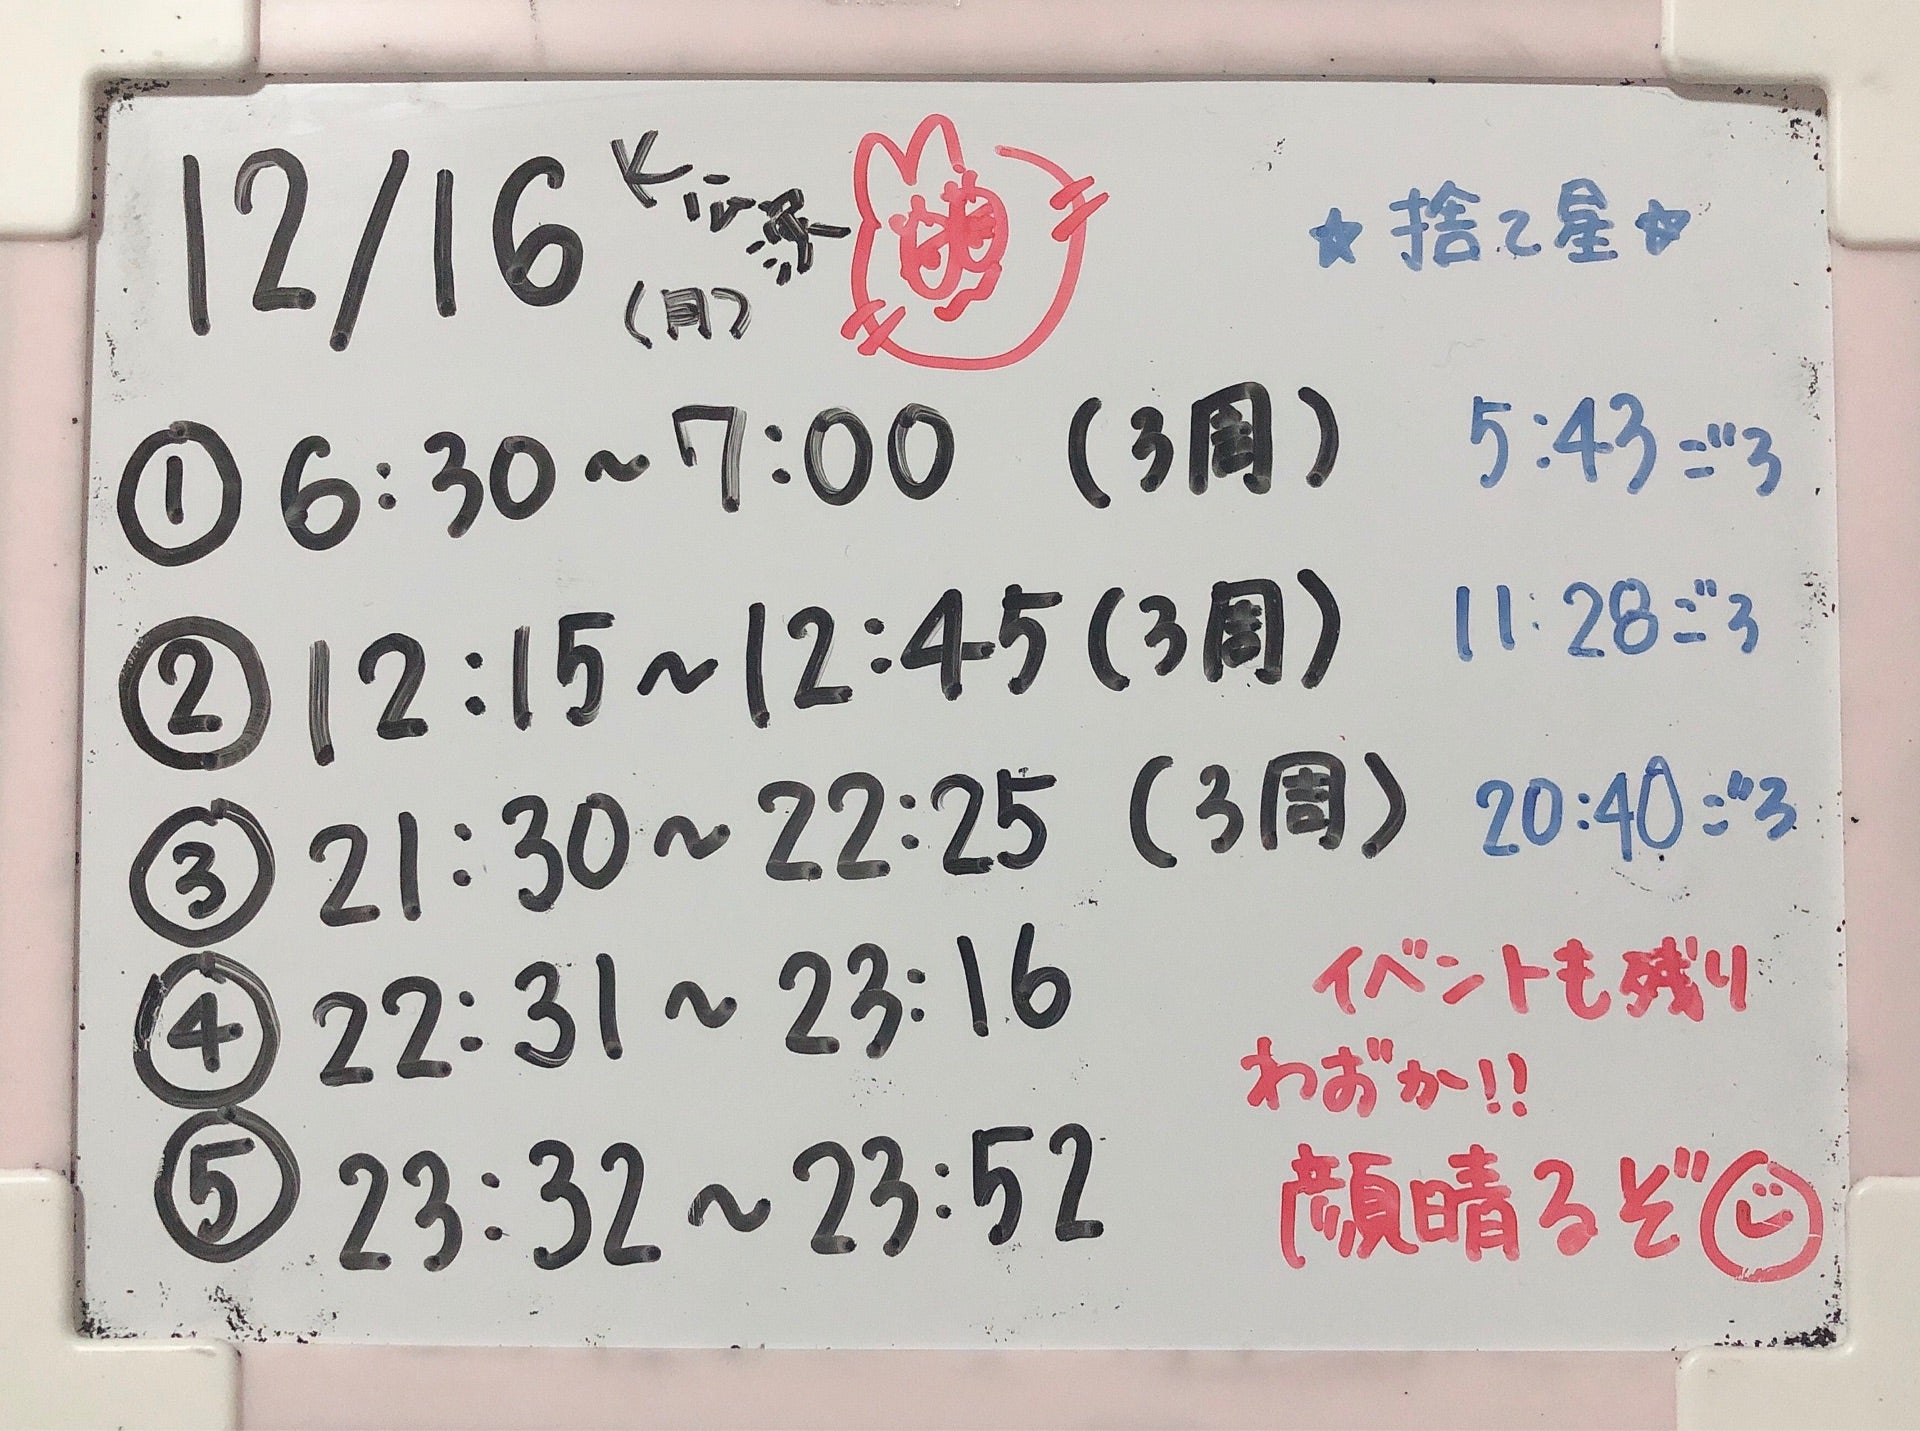 12/16
(月)
★捨て星★
① 6:30~7:00 (3周) 5:43ごろ
② 12:15~12:45(3周) 11:28ごろ
③ 21:30~22:25 (3周) 20:40ごろ
④ 22:31~23:16
⑤ 23:32~23:52
イベントも残り
わずか!!
顔晴るぞ